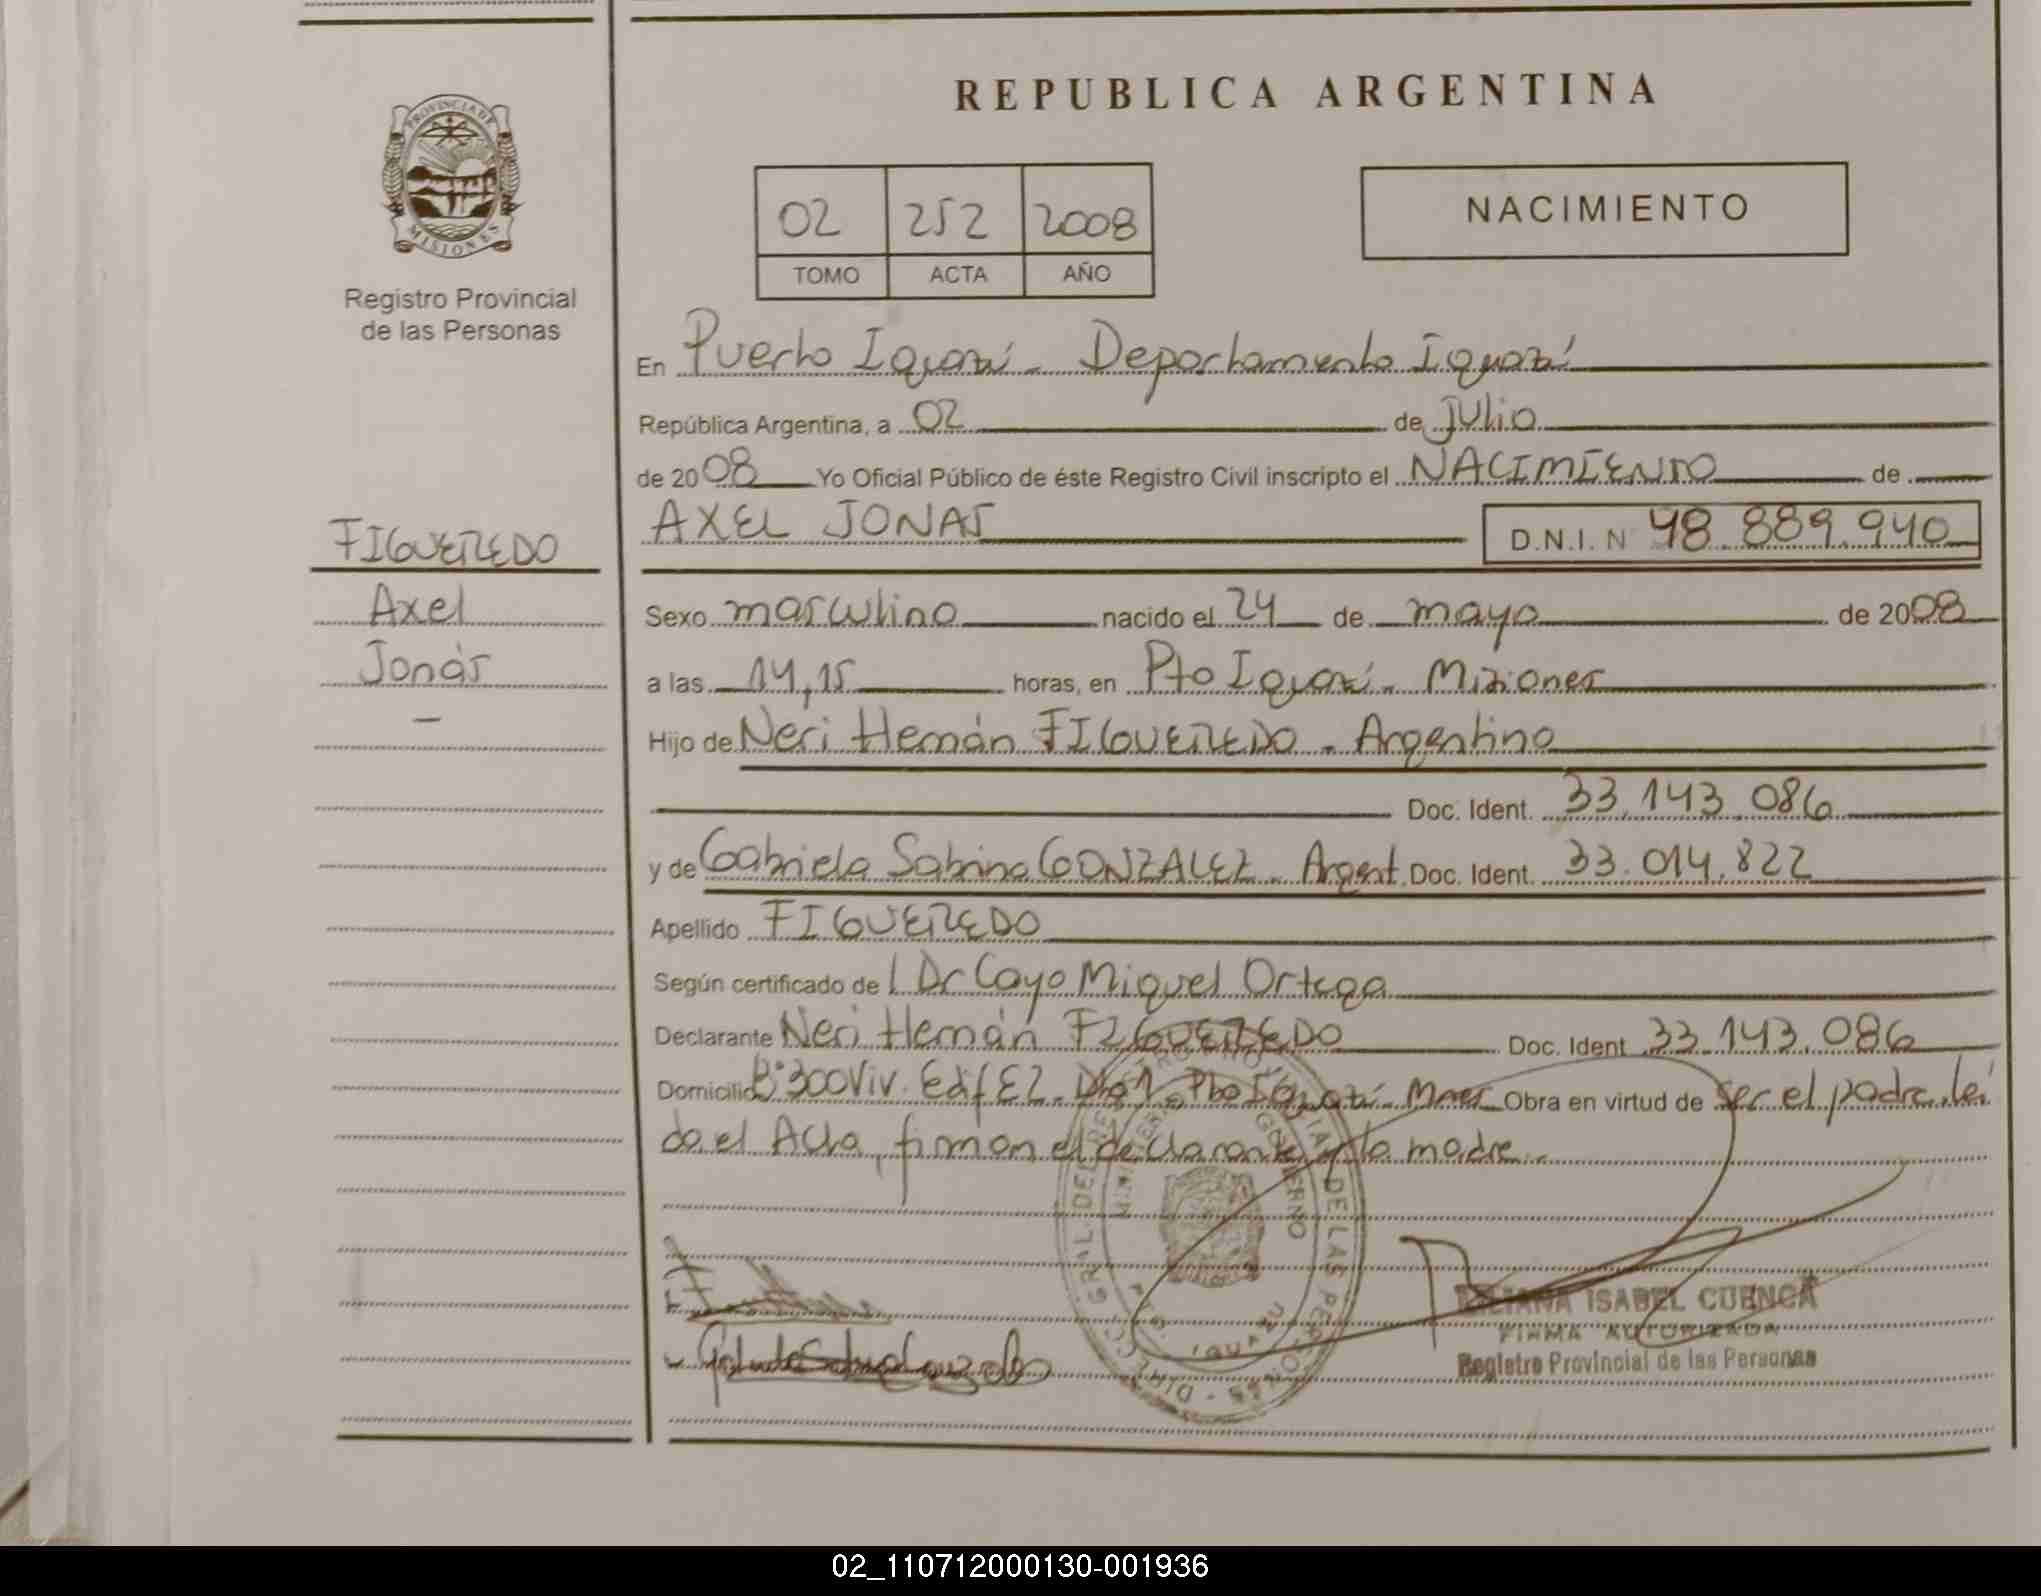 REPUBLICA ARGENTINA
PROVINCIA DE
MISIONES
Registro Provincial
de las Personas
02 252 2008
TOMO ACTA AÑO
NACIMIENTO
En Puerto Iguazú - Departamento Iguazú
República Argentina, a 02 de Julio
de 2008 Yo Oficial Público de éste Registro Civil inscripto el NACIMIENTO de
AXEL JONAS D.N.I. N 48.889.940
FIGUEREDO
Axel
Jonás
Sexo masculino nacido el 24 de mayo de 2008
a las 14,15 horas, en Pto Iguazú - Misiones
Hijo de Neri Hernán FIGUEREDO - Argentino
Doc. Ident. 33.143.086
y de Gabriela Sabina GONZALEZ - Argent. Doc. Ident. 33.014.822
Apellido FIGUEREDO
Según certificado de l Dr Cayo Miguel Ortega
Declarante Neri Hernán FIGUEREDO Doc. Ident 33.143.086
Domicilio Bº 300 Viv. Edif E2 - Dto 1. Pto Iguazú - Mnes Obra en virtud de ser el padre. leí
da el Acta, firman el declarante y la madre.-
LILIANA ISABEL CUENCA
FIRMA AUTORIZADA
Registro Provincial de las Personas
02_110712000130-001936